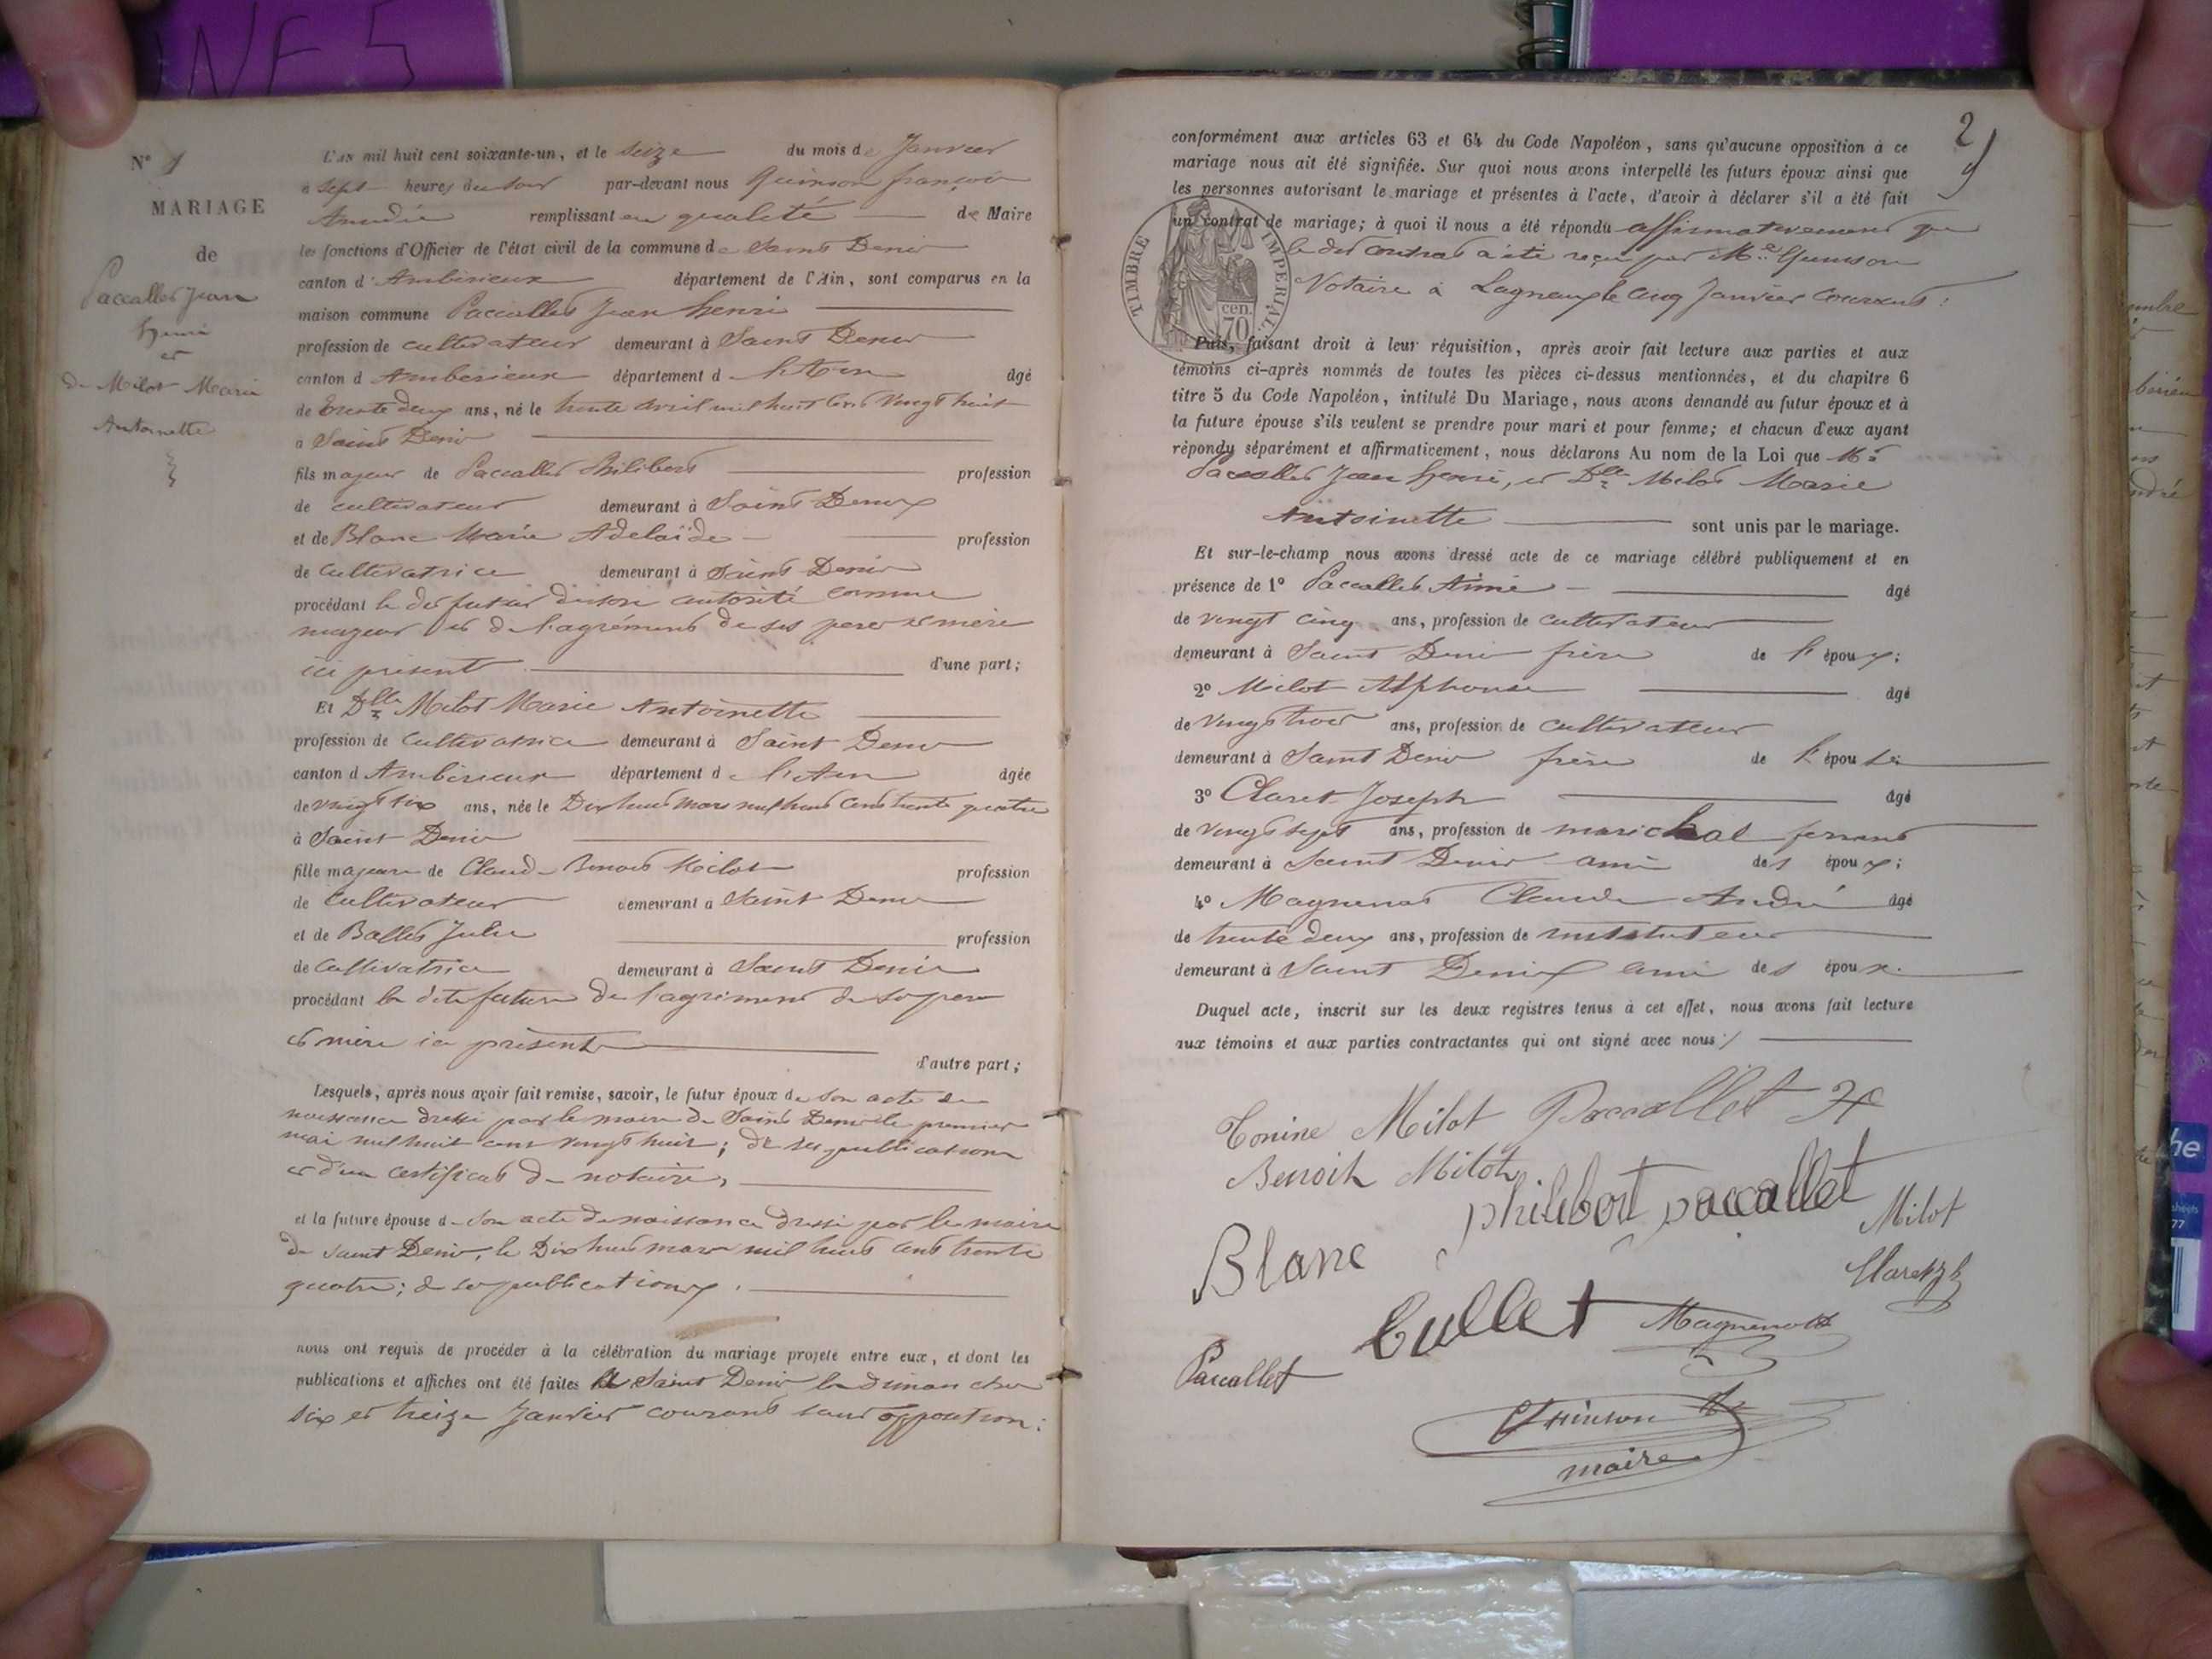 INF 5
N° 1
MARIAGE
de
Paccallet Jean
henri
et
de Milot Marie
Antoinette
L'an mil huit cent soixante-un, et le seize du mois de Janvier
à sept heures du soir par-devant nous Quinson françois
Amédée remplissant en qualité de Maire
les fonctions d'Officier de l'état civil de la commune de Saint Denis
canton d'Ambérieux département de l'Ain, sont comparus en la
maison commune Paccallet Jean henri
profession de cultivateur demeurant à Saint Denis
canton d Ambérieux département de l'Ain âgé
de trente deux ans, né le trente avril mil huit cent vingt huit
à Saint Denis
fils majeur de Paccallet Philibert profession
de cultivateur demeurant à Saint Denis
et de Blanc Marie Adelaïde profession
de cultivatrice demeurant à Saint Denis
procédant le dit futur de son autorité comme
majeur et de l'agrément de ses père et mère
ici présent d'une part;
Et Dlle Milot Marie Antoinette
profession de cultivatrice demeurant à Saint Denis
canton d Ambérieux département de l'Ain âgée
de vingt six ans, née le Dix huit mars mil huit cent trente quatre
à Saint Denis
fille majeure de Claude Benoit Milot profession
de cultivateur demeurant à Saint Denis
et de Ballet Julie profession
de cultivatrice demeurant à Saint Denis
procédant la dite future de l'agrément de ses père
et mère ici présents
d'autre part;
Lesquels, après nous avoir fait remise, savoir, le futur époux de son acte de
naissance dressé par le maire de Saint Denis le premier
mai mil huit cent vingt huit; de ses publications
et d'un certificat de notaire,
et la future épouse de son acte de naissance dressé par le maire
de Saint Denis, le Dix huit mars mil huit cent trente
quatre; de ses publications.
nous ont requis de procéder à la célébration du mariage projeté entre eux, et dont les
publications et affiches ont été faites à Saint Denis les dimanches
six et treize Janvier courant sans opposition:
2
conformément aux articles 63 et 64 du Code Napoléon, sans qu'aucune opposition à ce
mariage nous ait été signifiée. Sur quoi nous avons interpellé les futurs époux ainsi que
les personnes autorisant le mariage et présentes à l'acte, d'avoir à déclarer s'il a été fait
un contrat de mariage; à quoi il nous a été répondu affirmativement que
le dit contrat a été reçu par Me Quinson
Notaire à Lagnieu le cinq Janvier courant:
TIMBRE IMPERIAL
70 cen.
Puis, faisant droit à leur réquisition, après avoir fait lecture aux parties et aux
témoins ci-après nommés de toutes les pièces ci-dessus mentionnées, et du chapitre 6
titre 5 du Code Napoléon, intitulé Du Mariage, nous avons demandé au futur époux et à
la future épouse s'ils veulent se prendre pour mari et pour femme; et chacun d'eux ayant
répondu séparément et affirmativement, nous déclarons Au nom de la Loi que Mr
Paccallet Jean henri, et Dlle Milot Marie
Antoinette sont unis par le mariage.
Et sur-le-champ nous avons dressé acte de ce mariage célébré publiquement et en
présence de 1° Paccallet Aimé âgé
de vingt cinq ans, profession de cultivateur
demeurant à Saint Denis frère de l'époux;
2° Milot Alphonse âgé
de vingt trois ans, profession de cultivateur
demeurant à Saint Denis frère de l'épouse;
3° Claret Joseph âgé
de vingt sept ans, profession de maréchal ferrant
demeurant à Saint Denis ami des époux;
4° Magnenot Claude André âgé
de trente deux ans, profession de instituteur
demeurant à Saint Denis ami des époux.
Duquel acte, inscrit sur les deux registres tenus à cet effet, nous avons fait lecture
aux témoins et aux parties contractantes qui ont signé avec nous:/
Tonine Milot Paccallet
Benoit Milot
philibert paccallet
Milot
Blanc
Claret
Magnenot
Paccallet
Quinson
maire